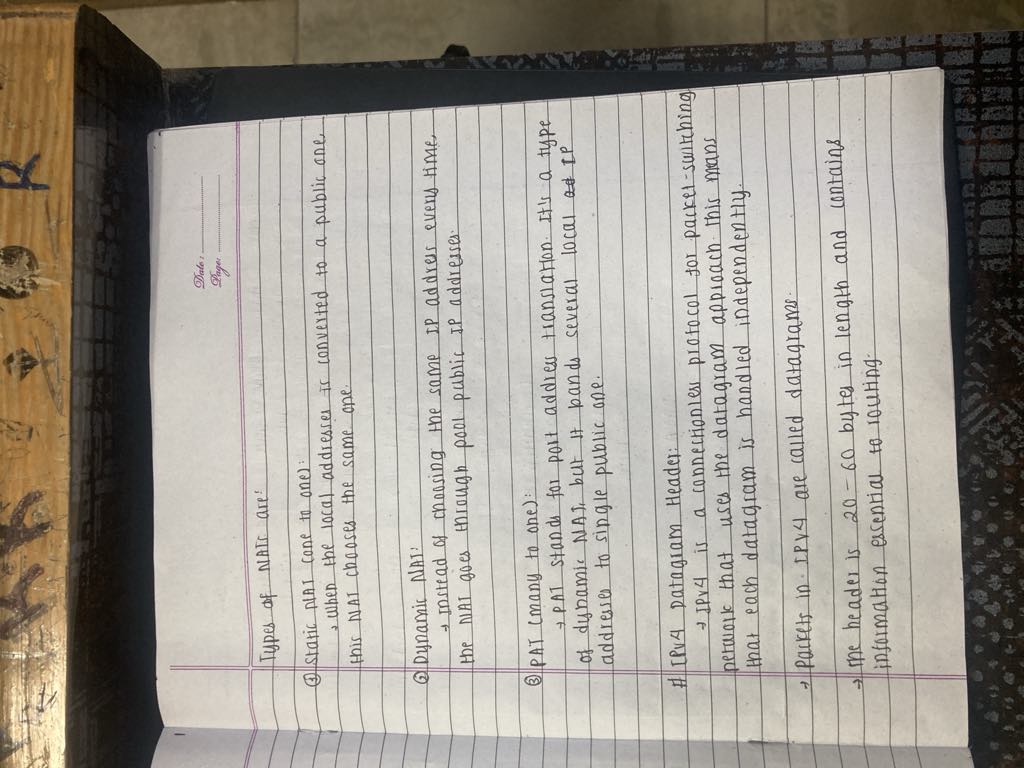 Date:
Page:
Types of NATs are:
① Static NAT (one to one):
→ When the local addresses is converted to a public one,
this NAT chooses the same one.
② Dynamic NAT:
→ Instead of choosing the same IP address every time,
the NAT goes through pool public IP addresses.
③ PAT (many to one):
→ PAT stands for port address translation. It's a type
of dynamic NAT, but it bands several local IP
addresses to single public one.
# IPv4 Datagram Header:
→ IPv4 is a connectionless protocol for packet-switching
network that uses the datagram approach. This means
that each datagram is handled independently.
→ Packets in IPV4 are called datagrams.
→ The header is 20-60 bytes in length and contains
information essential to routing.